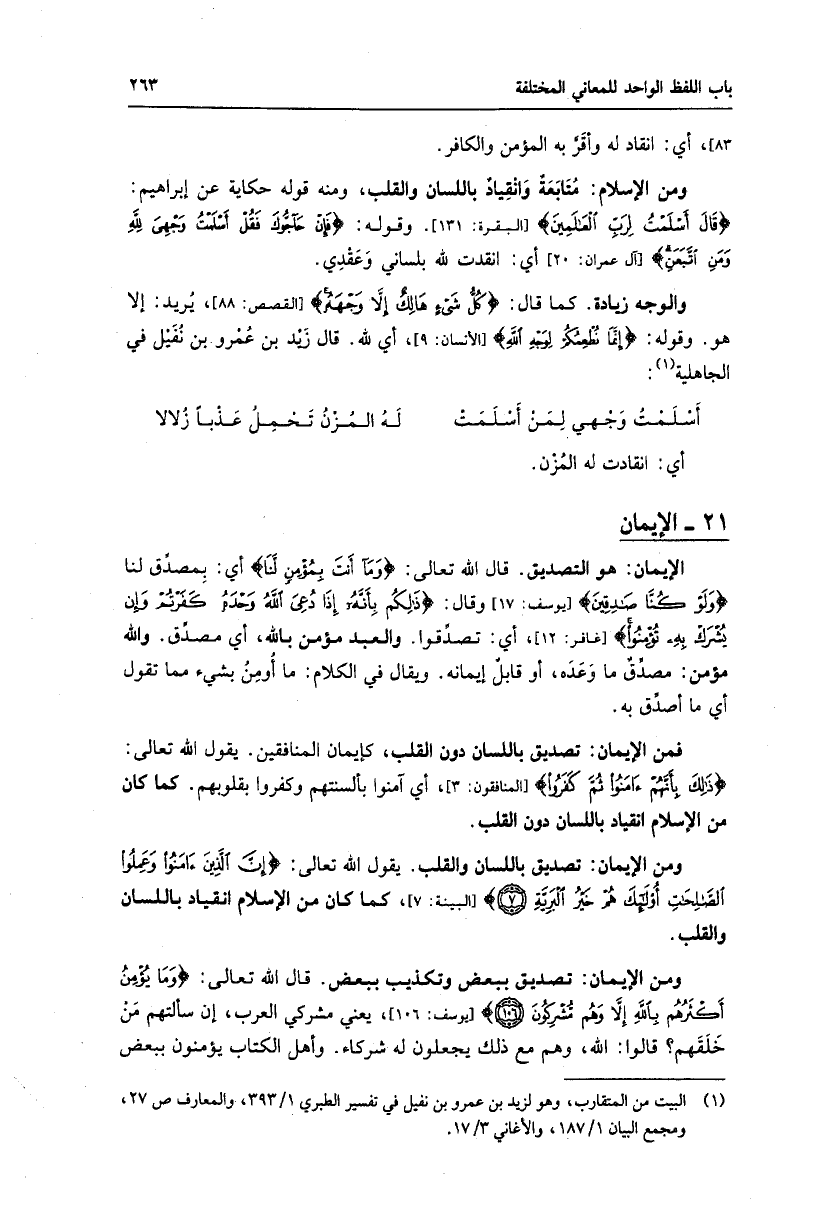 باب اللفظ الواحد للمعاني المختلفة ٢٦٣
٨٣]، أي: انقاد له وأقَرَّ به المؤمن والكافر.
ومن الإسلام: مُتَابَعَةٌ وَانْقِيادٌ باللسان والقلب، ومنه قوله حكاية عن إبراهيم:
﴿قَالَ أَسْلَمْتُ لِرَبِّ ٱلْعَٰلَمِينَ﴾ [البقرة: ١٣١]. وقوله: ﴿فَإِنْ حَآجُّوكَ فَقُلْ أَسْلَمْتُ وَجْهِىَ لِلَّهِ
وَمَنِ ٱتَّبَعَنِ﴾ [آل عمران: ٢٠] أي: انقدت لله بلساني وَعَقْدِي.
والوجه زيادة. كما قال: ﴿كُلُّ شَىْءٍ هَالِكٌ إِلَّا وَجْهَهُۥ﴾ [القصص: ٨٨]، يُريد: إلا
هو. وقوله: ﴿إِنَّمَا نُطْعِمُكُمْ لِوَجْهِ ٱللَّهِ﴾ [الأنسان: ٩]، أي لله. قال زَيْد بن عَمْرو بن نُفَيْل في
الجاهلية(١):
أَسْلَمْتُ وَجْهي لِمَنْ أَسْلَمَتْ لَهُ الـمُـزْنُ تَحْمِلُ عَذْباً زُلالا
أي: انقادت له المُزْن.
٢١ ـ الإيمان
الإيمان: هو التصديق. قال الله تعالى: ﴿وَمَآ أَنتَ بِمُؤْمِنٍ لَّنَا﴾ أي: بِمصدِّق لنا
﴿وَلَوْ كُنَّا صَٰدِقِينَ﴾ [يوسف: ١٧] وقال: ﴿ذَٰلِكُم بِأَنَّهُۥٓ إِذَا دُعِىَ ٱللَّهُ وَحْدَهُۥ كَفَرْتُمْ وَإِن
يُشْرَكْ بِهِۦ تُؤْمِنُوا۟﴾ [غافر: ١٢]، أي: تصدِّقوا. والعبد مؤمن بالله، أي مصدِّق. والله
مؤمن: مصدِّقٌ ما وَعَدَه، أو قابلٌ إيمانه. ويقال في الكلام: ما أُومِنُ بشيء مما تقول
أي ما أصدِّق به.
فمن الإيمان: تصديق باللسان دون القلب، كإيمان المنافقين. يقول الله تعالى:
﴿ذَٰلِكَ بِأَنَّهُمْ ءَامَنُوا۟ ثُمَّ كَفَرُوا۟﴾ [المنافقون: ٣]، أي آمنوا بألسنتهم وكفروا بقلوبهم. كما كان
من الإسلام انقياد باللسان دون القلب.
ومن الإيمان: تصديق باللسان والقلب. يقول الله تعالى: ﴿إِنَّ ٱلَّذِينَ ءَامَنُوا۟ وَعَمِلُوا۟
ٱلصَّٰلِحَٰتِ أُو۟لَٰٓئِكَ هُمْ خَيْرُ ٱلْبَرِيَّةِ ٧﴾ [البينة: ٧]، كما كان من الإسلام انقياد باللسان
والقلب.
ومن الإيمان: تصديق ببعض وتكذيب ببعض. قال الله تعالى: ﴿وَمَا يُؤْمِنُ
أَكْثَرُهُم بِٱللَّهِ إِلَّا وَهُم مُّشْرِكُونَ ١٠٦﴾ [يوسف: ١٠٦]، يعني مشركي العرب، إن سألتهم مَنْ
خَلَقَهم؟ قالوا: الله، وهم مع ذلك يجعلون له شركاء. وأهل الكتاب يؤمنون ببعض
(١) البيت من المتقارب، وهو لزيد بن عمرو بن نفيل في تفسير الطبري ٣٩٣/١، والمعارف ص ٢٧،
ومجمع البيان ١٨٧/١، والأغاني ١٧/٣.